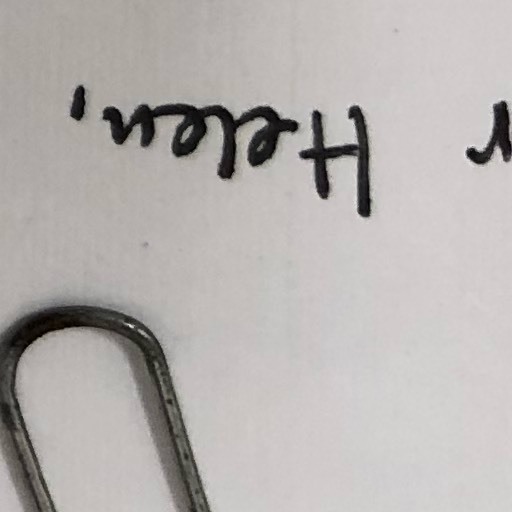 r Helen,